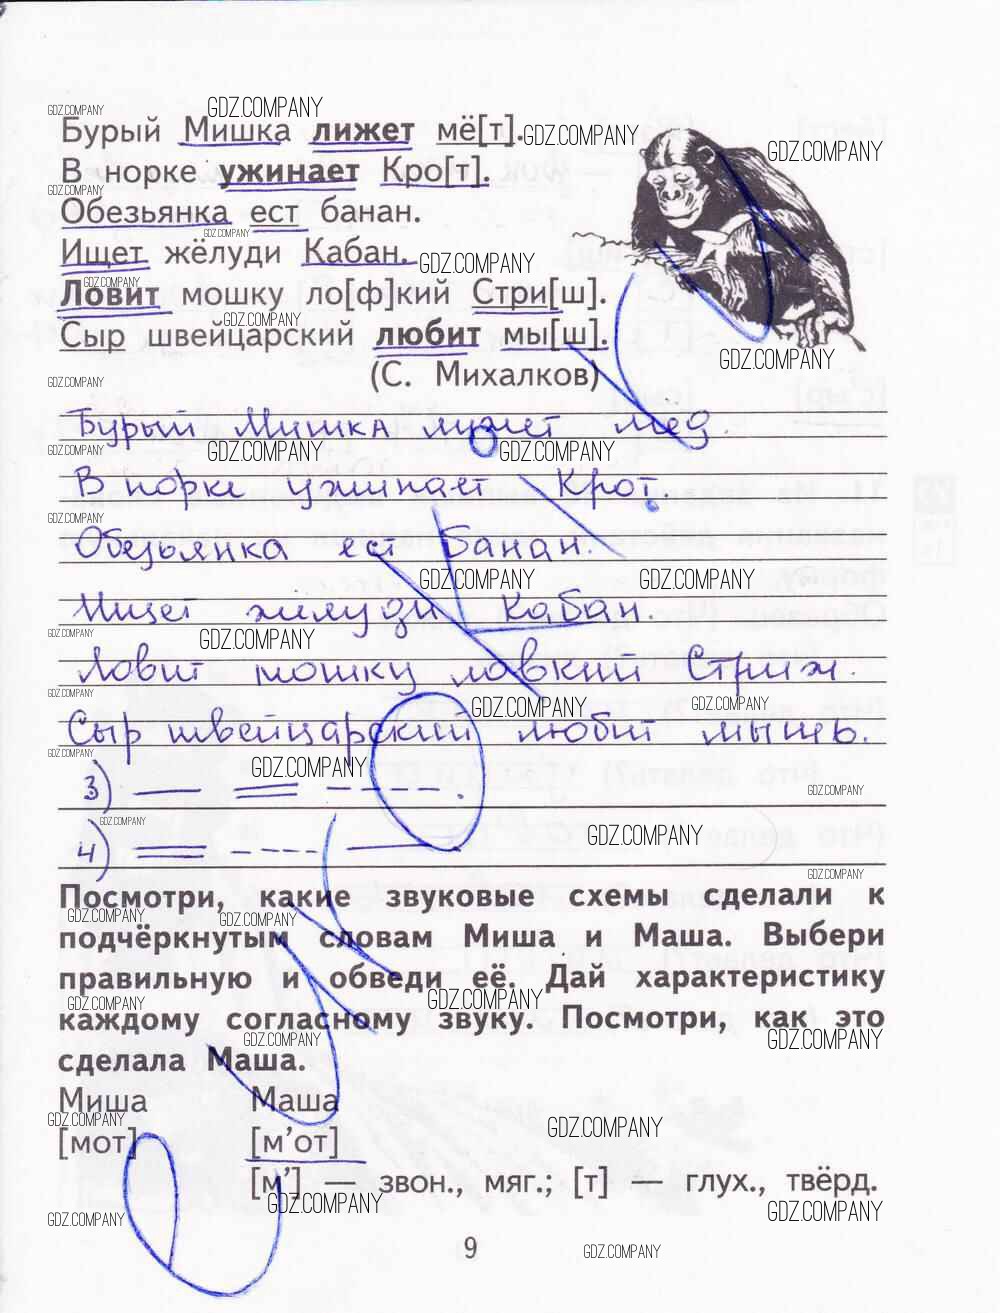 GDZ.COMPANY
Бурый Мишка лижет мё[т].
В норке ужинает Кро[т].
Обезьянка ест банан.
Ищет жёлуди Кабан.
Ловит мошку ло[ф]кий Стри[ш].
Сыр швейцарский любит мы[ш].
(С. Михалков)
Бурый Мишка лижет мед.
В норке ужинает Крот.
Обезьянка ест банан.
Ищет жилуди Кабан.
Ловит мошку ловкий Стриж.
Сыр швейцарский любит мышь.
3)
4)
Посмотри, какие звуковые схемы сделали к
подчёркнутым словам Миша и Маша. Выбери
правильную и обведи её. Дай характеристику
каждому согласному звуку. Посмотри, как это
сделала Маша.
Миша Маша
[мот] [м’от]
[м’] — звон., мяг.; [т] — глух., твёрд.
9
GDZ.COMPANY